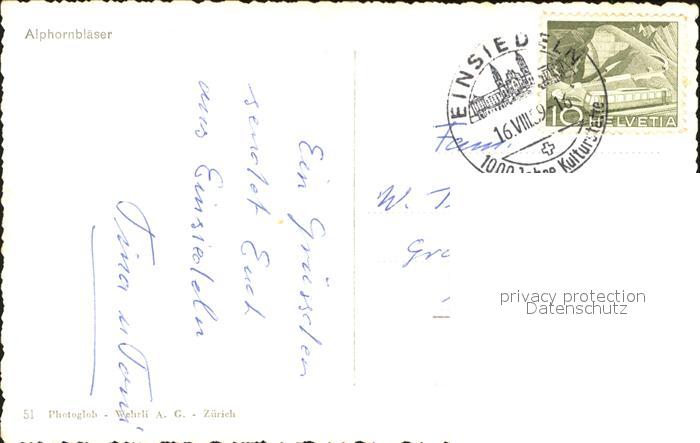 Alphornbläser
EINSIEDELN
16.VIII.59-16
1000 Jahre Kulturstätte
10 HELVETIA
Ein Grüsschen
sendet Euch
aus Einsiedeln
Tina u Toni
Fam.
W. T
Gro
privacy protection
Datenschutz
51 Photoglob - Wehrli A. G. - Zürich